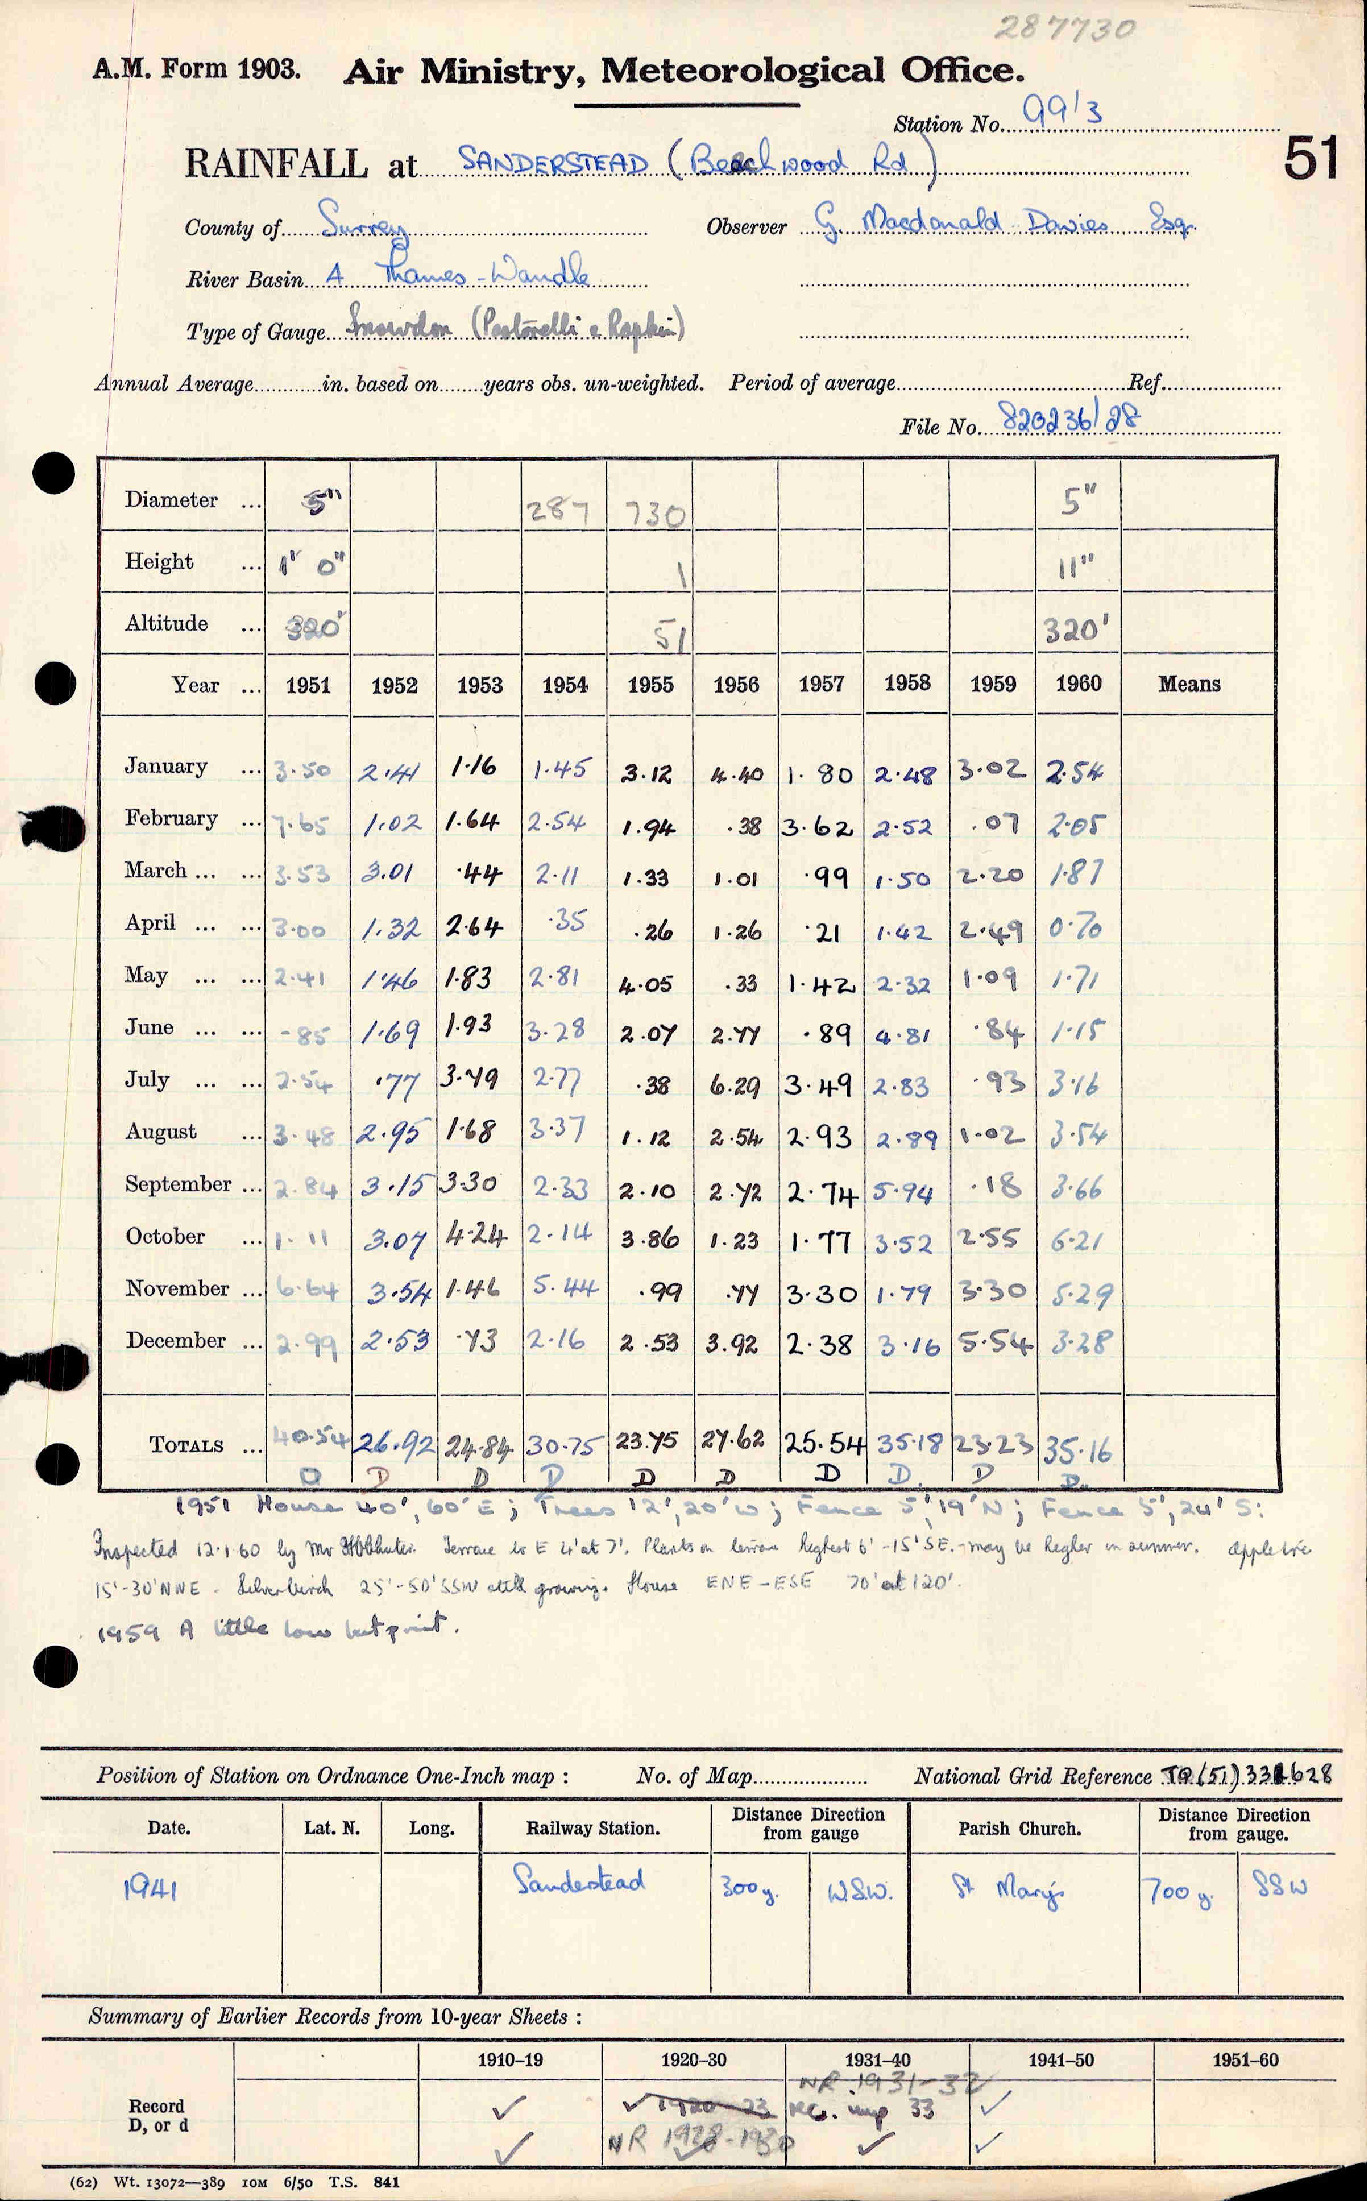 287730
A.M. Form 1903. Air Ministry, Meteorological Office.
Station No. 99/3
51
RAINFALL at SANDERSTEAD (Beechwood Rd)
County of Surrey Observer G. Macdonald Davies Esq.
River Basin A Thames-Wandle
Type of Gauge Snowdon (Pastorelli & Rapkin)
Annual Average in. based on years obs. un-weighted. Period of average Ref.
File No. 820236/28
Diameter ... 5" 287 730 5"
Height ... 1' 0" 1 11"
Altitude ... 320' 51 320'
Year ... 1951 1952 1953 1954 1955 1956 1957 1958 1959 1960 Means
January ... 3.50 2.41 1.16 1.45 3.12 4.40 1.80 2.48 3.02 2.54
February ... 7.65 1.02 1.64 2.54 1.94 .38 3.62 2.52 .07 2.05
March ... ... 3.53 3.01 .44 2.11 1.33 1.01 .99 1.50 2.20 1.87
April ... ... 3.00 1.32 2.64 .35 .26 1.26 .21 1.42 2.49 0.70
May ... ... 2.41 1.46 1.83 2.81 4.05 .33 1.42 2.32 1.09 1.71
June ... ... .85 1.69 1.93 3.28 2.07 2.77 .89 4.81 .84 1.15
July ... ... 2.54 .77 3.79 2.77 .38 6.29 3.49 2.83 .93 3.16
August ... 3.48 2.95 1.68 3.37 1.12 2.54 2.93 2.89 1.02 3.54
September ... 2.84 3.15 3.30 2.33 2.10 2.72 2.74 5.94 .18 3.66
October ... 1.11 3.07 4.24 2.14 3.86 1.23 1.77 3.52 2.55 6.21
November ... 6.64 3.54 1.46 5.44 .99 .77 3.30 1.79 3.30 5.29
December ... 2.99 2.53 .73 2.16 2.53 3.92 2.38 3.16 5.54 3.28
TOTALS ... 40.54 26.92 24.84 30.75 23.75 27.62 25.54 35.18 23.23 35.16
D D D D D D D D. D D.
1951 House 40', 60' E; Trees 12', 20' W; Fence 5', 19' N; Fence 5', 24' S:
Inspected 12.1.60 by Mr Terrace to E 4' at 7'. Plants on terrace highest 6' - 15' SE. - may be higher in summer. Apple tree
15' - 30' NNE. Silver birch 25' - 50' SSW still growing. House ENE - ESE 70' at 120'.
1959 A little low but print.
Position of Station on Ordnance One-Inch map : No. of Map National Grid Reference TQ(51)331628
Date. Lat. N. Long. Railway Station. Distance Direction from gauge Parish Church. Distance Direction from gauge.
1941 Sanderstead 300y. W.S.W. St Mary's 700y. SSW
Summary of Earlier Records from 10-year Sheets :
1910–19 1920–30 1931–40 1941–50 1951–60
NR 1931-32
Record ✓ ✓ 1920 23 rec. imp 33 ✓
D, or d ✓ NR 1928-1930 ✓ ✓
(62) Wt. 13072—389 10M 6/50 T.S. 841